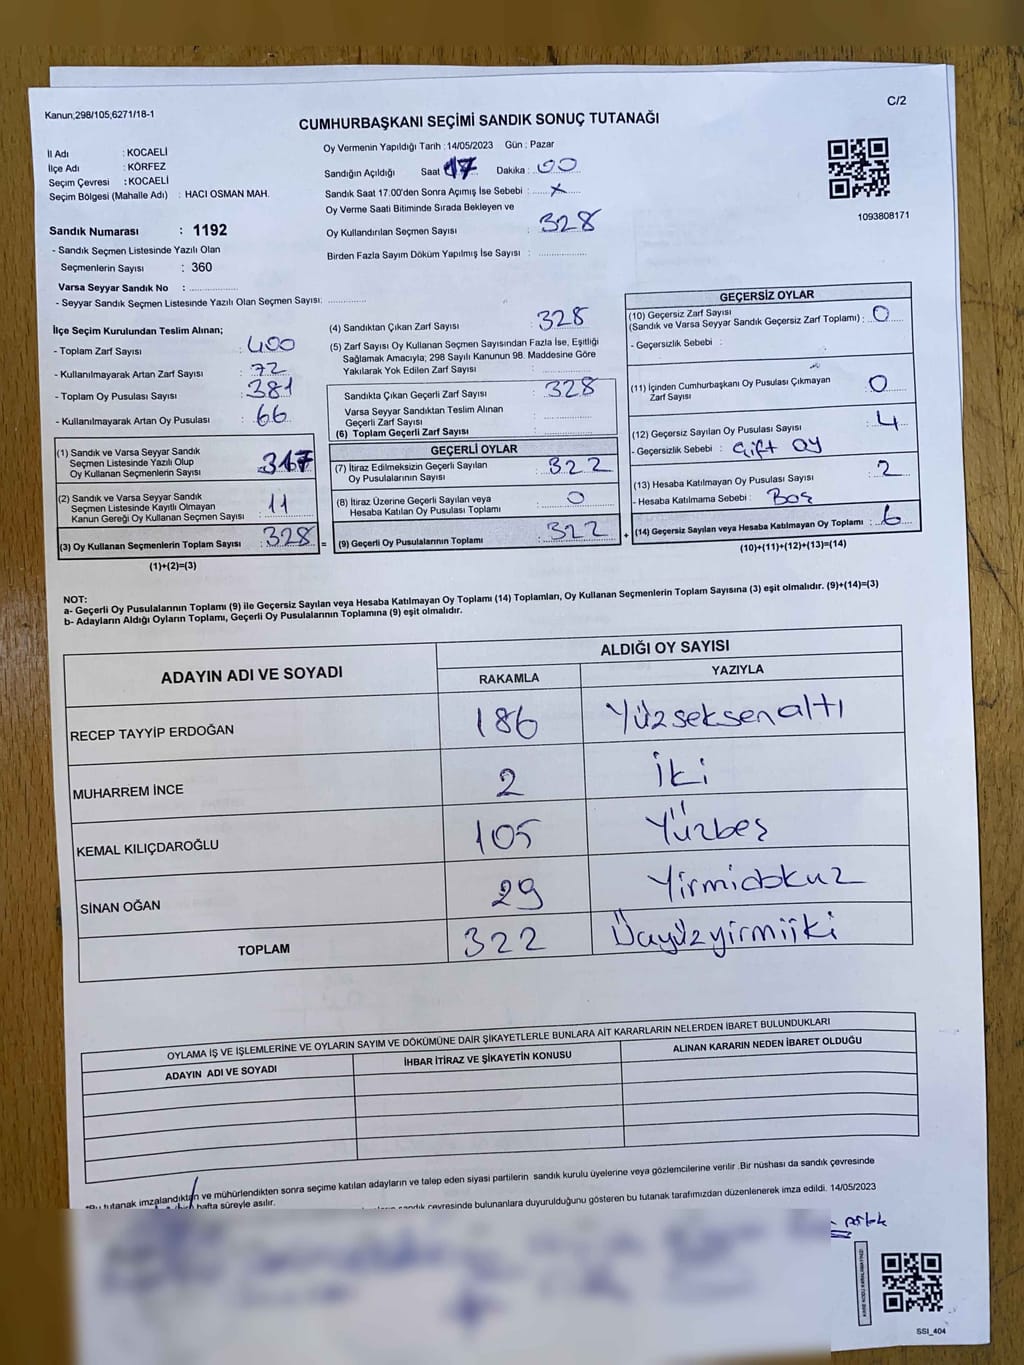 Kanun,298/105,6271/18-1
C/2
CUMHURBAŞKANI SEÇİMİ SANDIK SONUÇ TUTANAĞI
İl Adı : KOCAELİ
İlçe Adı : KÖRFEZ
Seçim Çevresi : KOCAELİ
Seçim Bölgesi (Mahalle Adı) : HACI OSMAN MAH.
Oy Vermenin Yapıldığı Tarih : 14/05/2023 Gün : Pazar
Sandığın Açıldığı Saat 17 Dakika : 00
Sandık Saat 17.00'den Sonra Açımış İse Sebebi : x
Oy Verme Saati Bitiminde Sırada Bekleyen ve
Oy Kullandırılan Seçmen Sayısı : 328
Birden Fazla Sayım Döküm Yapılmış İse Sayısı :
1093808171
Sandık Numarası : 1192
- Sandık Seçmen Listesinde Yazılı Olan
Seçmenlerin Sayısı : 360
Varsa Seyyar Sandık No :
- Seyyar Sandık Seçmen Listesinde Yazılı Olan Seçmen Sayısı:
İlçe Seçim Kurulundan Teslim Alınan;
- Toplam Zarf Sayısı : 400
- Kullanılmayarak Artan Zarf Sayısı : 72
- Toplam Oy Pusulası Sayısı : 381
- Kullanılmayarak Artan Oy Pusulası : 66
(1) Sandık ve Varsa Seyyar Sandık
Seçmen Listesinde Yazılı Olup
Oy Kullanan Seçmenlerin Sayısı : 317
(2) Sandık ve Varsa Seyyar Sandık
Seçmen Listesinde Kayıtlı Olmayan
Kanun Gereği Oy Kullanan Seçmen Sayısı : 11
(3) Oy Kullanan Seçmenlerin Toplam Sayısı : 328 =
(1)+(2)=(3)
(4) Sandıktan Çıkan Zarf Sayısı : 328
(5) Zarf Sayısı Oy Kullanan Seçmen Sayısından Fazla İse, Eşitliği
Sağlamak Amacıyla; 298 Sayılı Kanunun 98. Maddesine Göre
Yakılarak Yok Edilen Zarf Sayısı :
Sandıkta Çıkan Geçerli Zarf Sayısı : 328
Varsa Seyyar Sandıktan Teslim Alınan
Geçerli Zarf Sayısı :
(6) Toplam Geçerli Zarf Sayısı :
GEÇERLİ OYLAR
(7) İtiraz Edilmeksizin Geçerli Sayılan
Oy Pusulalarının Sayısı : 322
(8) İtiraz Üzerine Geçerli Sayılan veya
Hesaba Katılan Oy Pusulası Toplamı : 0
(9) Geçerli Oy Pusulalarının Toplamı : 322 +
GEÇERSİZ OYLAR
(10) Geçersiz Zarf Sayısı
(Sandık ve Varsa Seyyar Sandık Geçersiz Zarf Toplamı) : 0
- Geçersizlik Sebebi :
(11) İçinden Cumhurbaşkanı Oy Pusulası Çıkmayan
Zarf Sayısı : 0
(12) Geçersiz Sayılan Oy Pusulası Sayısı : 4
- Geçersizlik Sebebi : Çift oy
(13) Hesaba Katılmayan Oy Pusulası Sayısı : 2
- Hesaba Katılmama Sebebi : Boş
(14) Geçersiz Sayılan veya Hesaba Katılmayan Oy Toplamı : 6
(10)+(11)+(12)+(13)=(14)
NOT:
a- Geçerli Oy Pusulalarının Toplamı (9) ile Geçersiz Sayılan veya Hesaba Katılmayan Oy Toplamı (14) Toplamları, Oy Kullanan Seçmenlerin Toplam Sayısına (3) eşit olmalıdır. (9)+(14)=(3)
b- Adayların Aldığı Oyların Toplamı, Geçerli Oy Pusulalarının Toplamına (9) eşit olmalıdır.
ADAYIN ADI VE SOYADI
ALDIĞI OY SAYISI
RAKAMLA YAZIYLA
RECEP TAYYİP ERDOĞAN 186 Yüzseksenaltı
MUHARREM İNCE 2 İki
KEMAL KILIÇDAROĞLU 105 Yüzbeş
SİNAN OĞAN 29 Yirmidokuz
TOPLAM 322 Üçyüzyirmiiki
OYLAMA İŞ VE İŞLEMLERİNE VE OYLARIN SAYIM VE DÖKÜMÜNE DAİR ŞİKAYETLERLE BUNLARA AİT KARARLARIN NELERDEN İBARET BULUNDUKLARI
ADAYIN ADI VE SOYADI İHBAR İTİRAZ VE ŞİKAYETİN KONUSU ALINAN KARARIN NEDEN İBARET OLDUĞU
*Bu tutanak imzalandıktan ve mühürlendikten sonra seçime katılan adayların ve talep eden siyasi partilerin sandık kurulu üyelerine veya gözlemcilerine verilir .Bir nüshası da sandık çevresinde
hafta süreyle asılır.
sandık çevresinde bulunanlara duyurulduğunu gösteren bu tutanak tarafımızdan düzenlenerek imza edildi. 14/05/2023
SSI_404